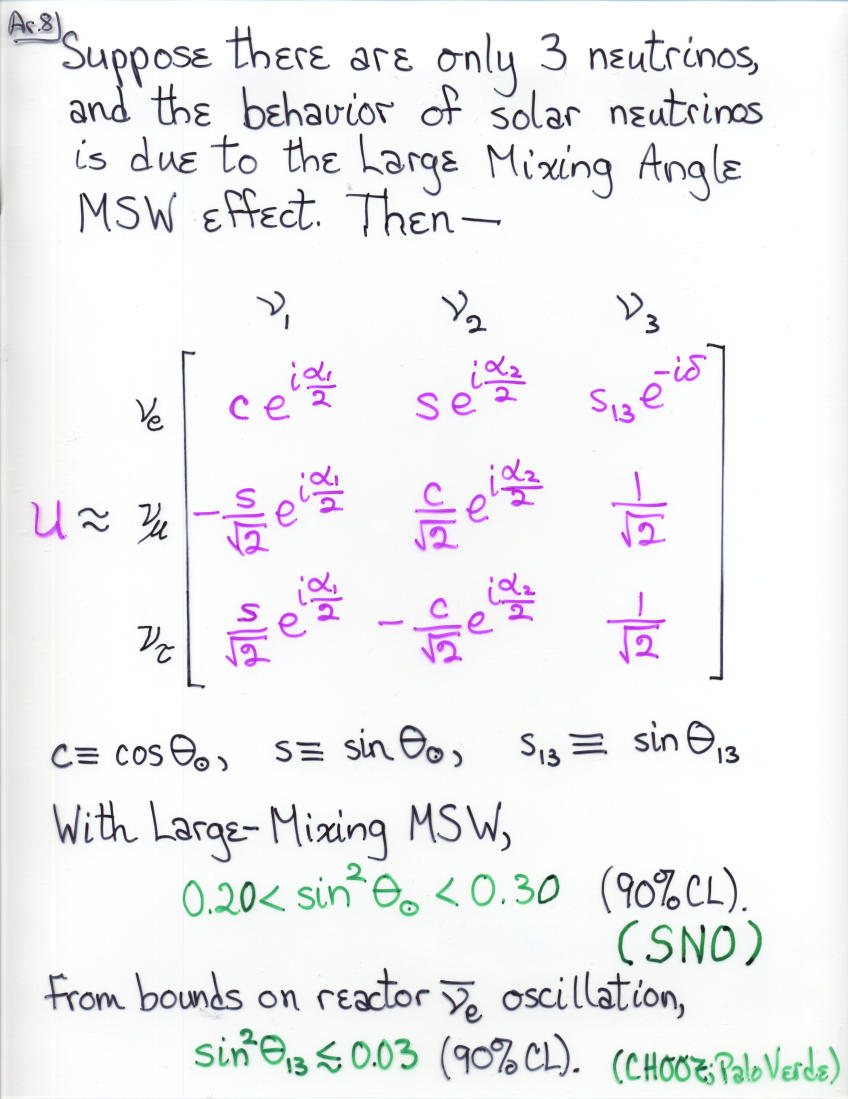 Ar.8
Suppose there are only 3 neutrinos,
and the behavior of solar neutrinos
is due to the Large Mixing Angle
MSW effect. Then —
ν₁ ν₂ ν₃
νe c e^{iα₁/2} s e^{iα₂/2} s₁₃ e^{-iδ}
U ≈ νμ -s/√2 e^{iα₁/2} c/√2 e^{iα₂/2} 1/√2
ντ s/√2 e^{iα₁/2} -c/√2 e^{iα₂/2} 1/√2
c ≡ cos θ⊙, s ≡ sin θ⊙, s₁₃ ≡ sin θ₁₃
With Large-Mixing MSW,
0.20 < sin² θ⊙ < 0.30 (90% CL).
(SNO)
From bounds on reactor ν̄e oscillation,
sin² θ₁₃ ≲ 0.03 (90% CL). (CHOOZ; Palo Verde)